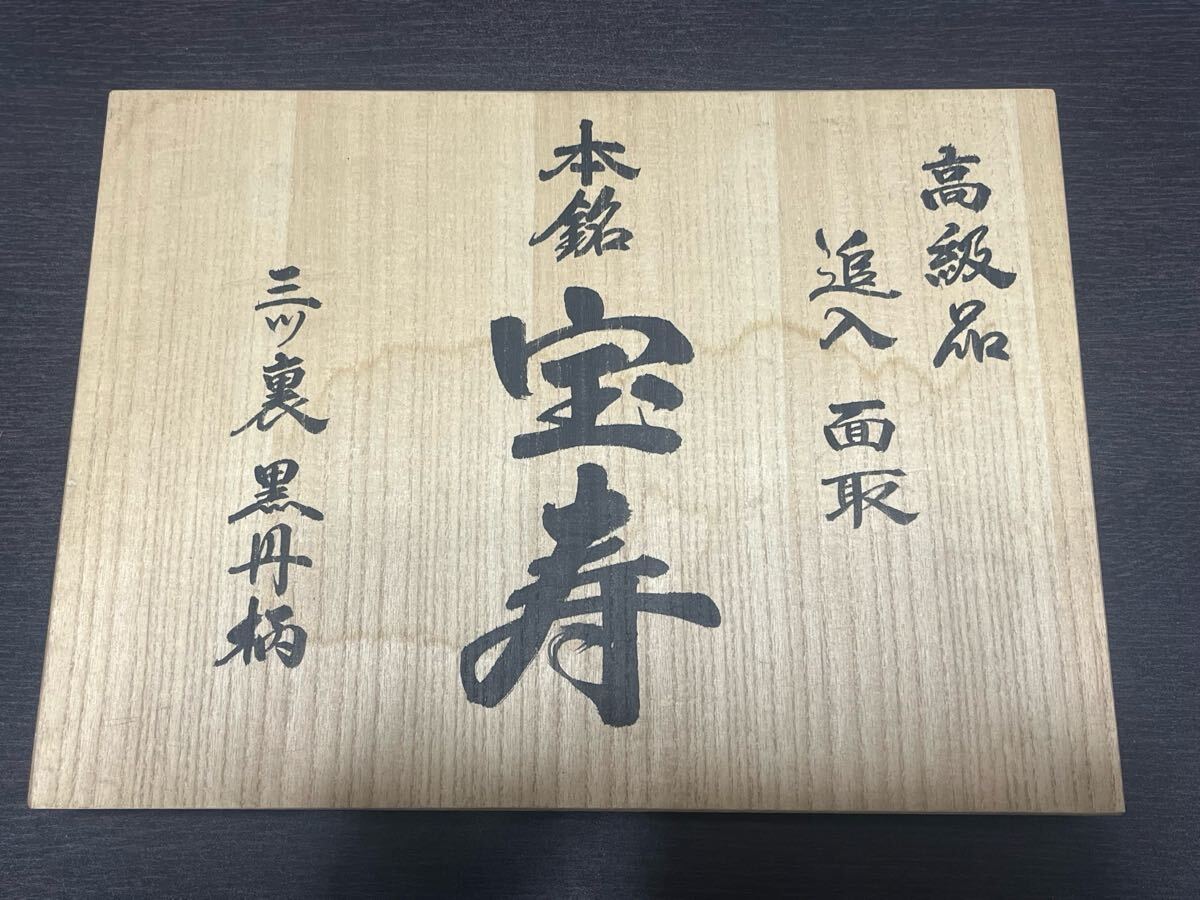 高級品
追入 面取
本銘
宝寿
三ツ裏 黒丹柄